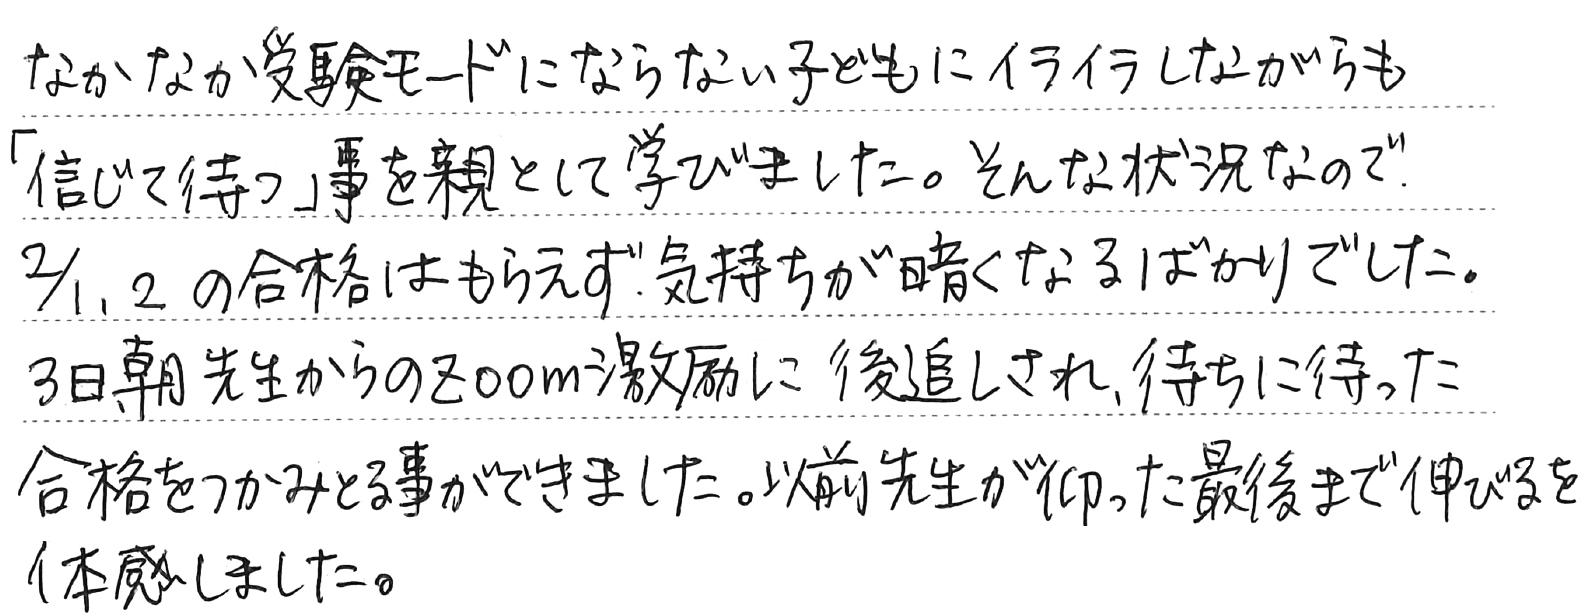 なかなか受験モードにならない子どもにイライラしながらも
「信じて待つ」事を親として学びました。そんな状況なので
2/1、2の合格はもらえず気持ちが暗くなるばかりでした。
3日朝先生からのZoom激励に後追しされ、待ちに待った
合格をつかみとる事ができました。以前先生が仰った最後まで伸びるを
体感しました。